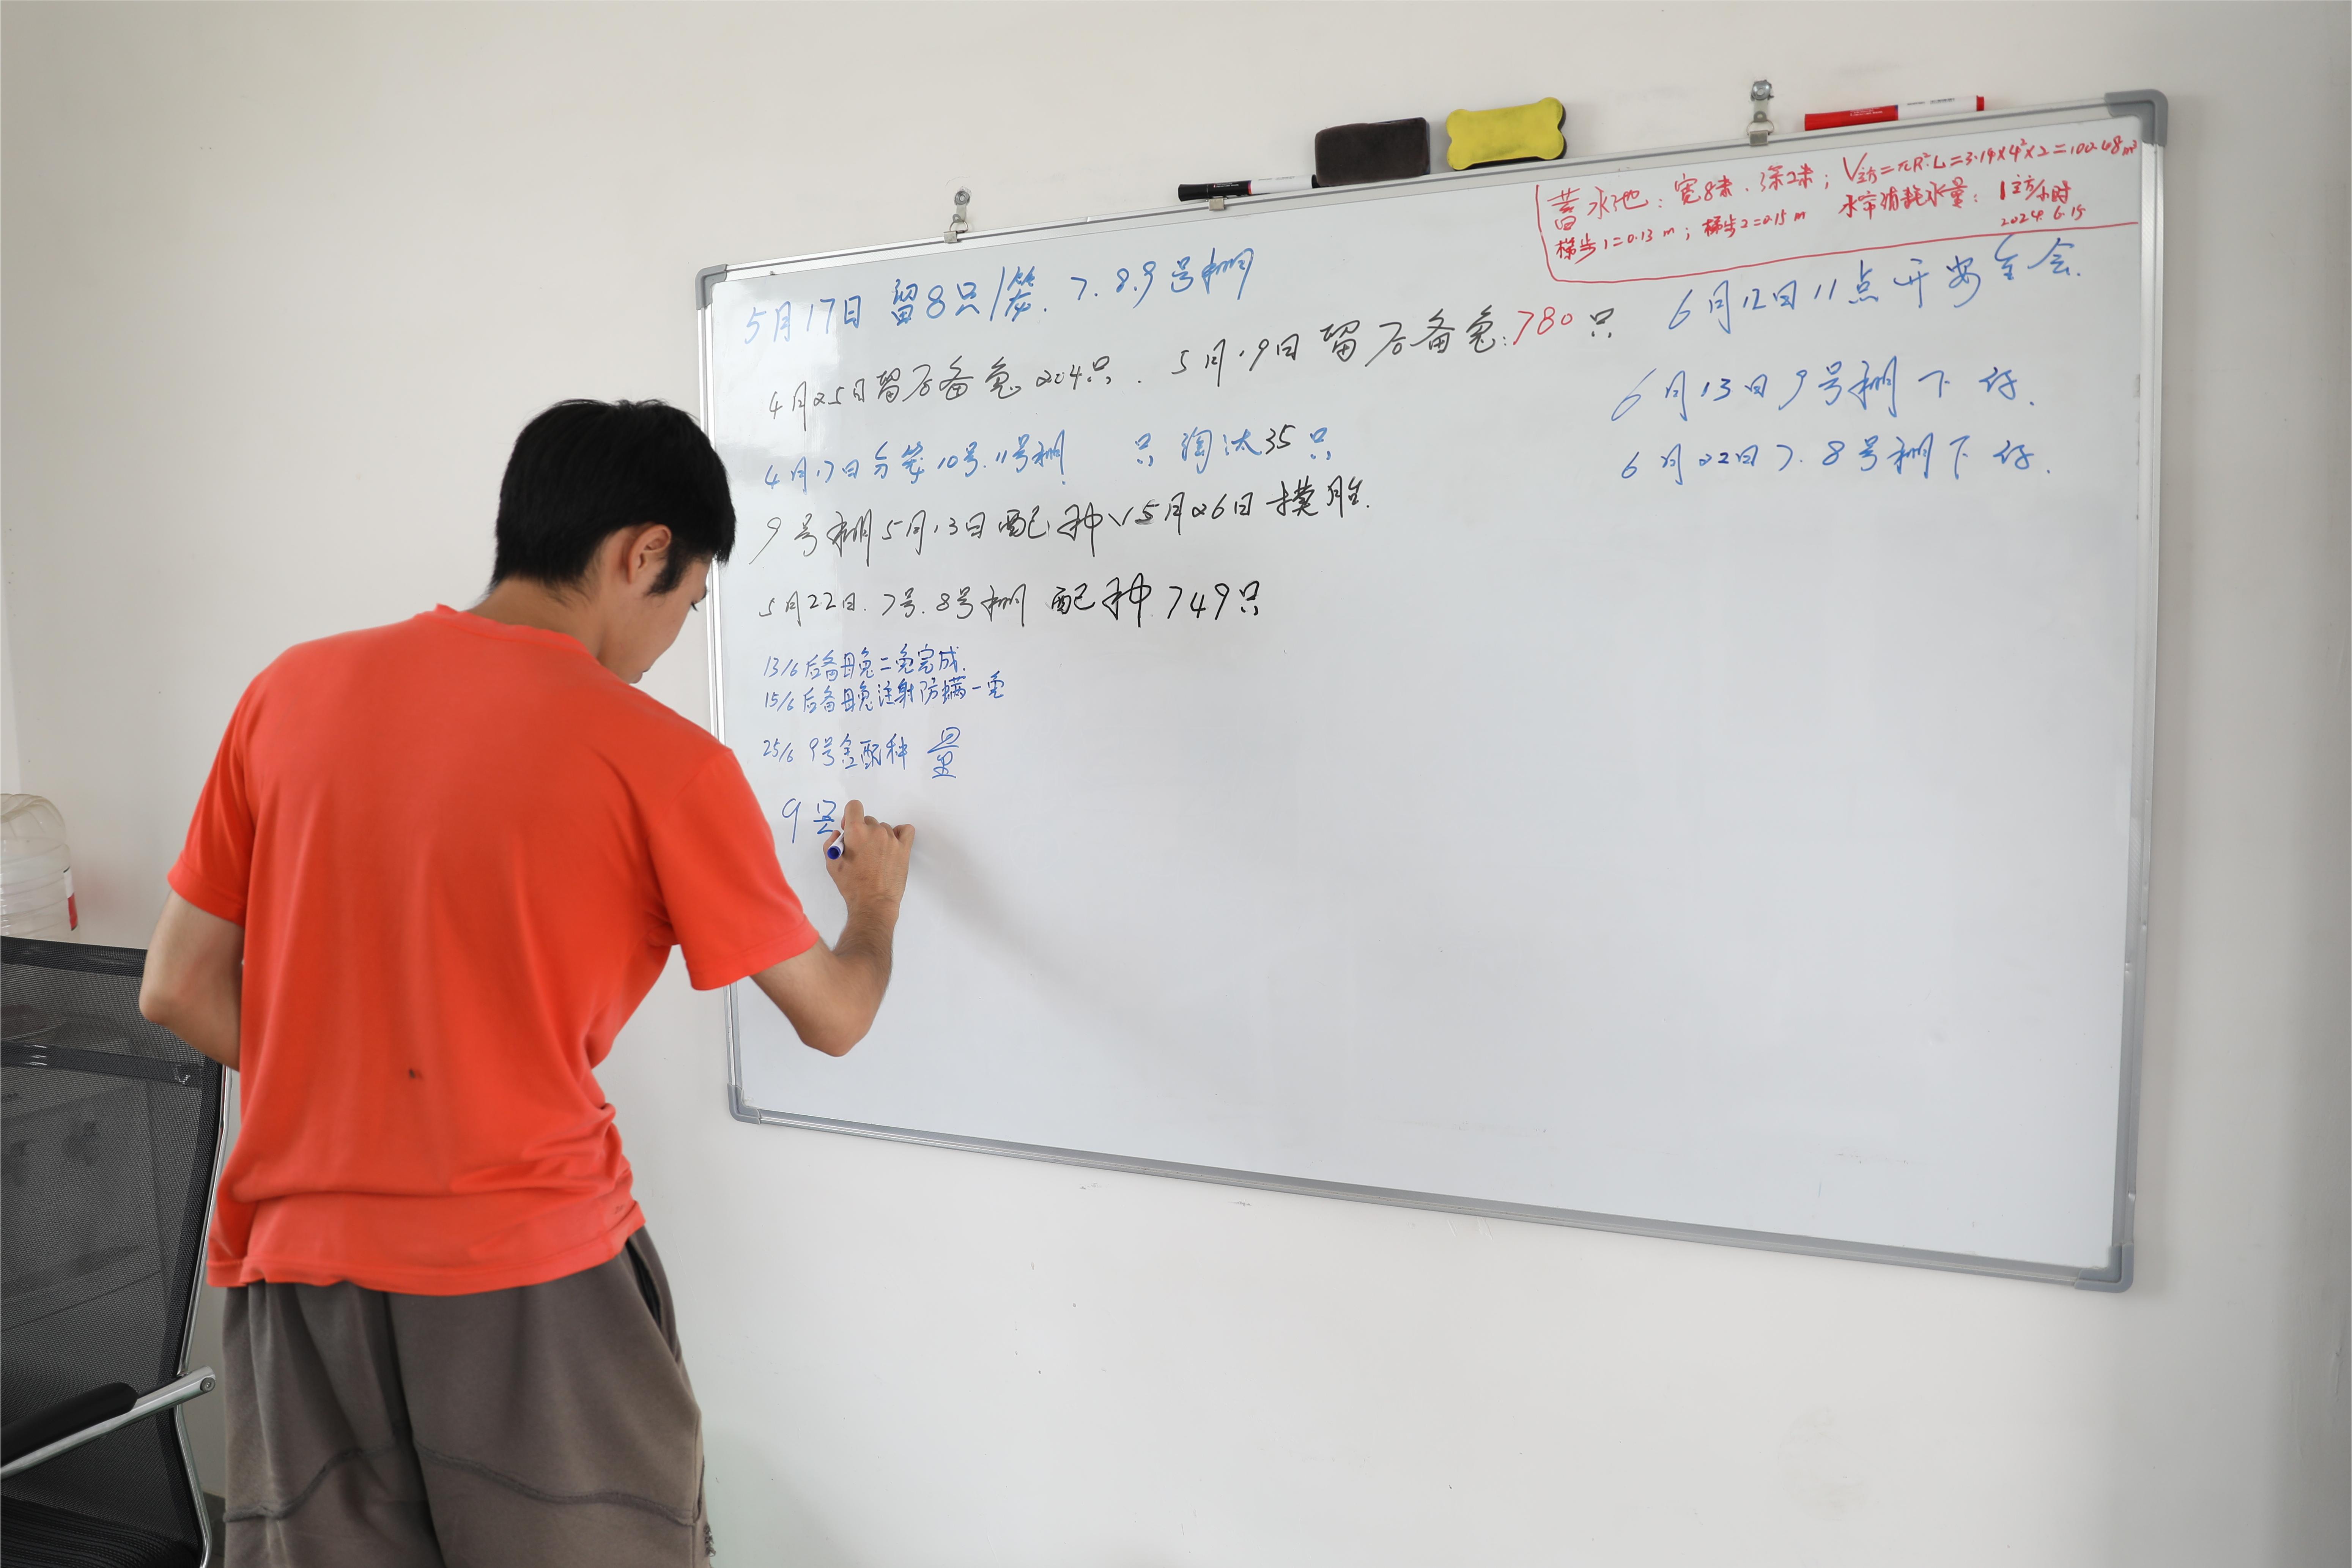 蓄水池：宽8米、深2米；V立方=πR²·L=3.14×4²×2=100.48m³
梯步1=0.13m；梯步2=0.15m 水帘消耗水量：1立方/小时
2024.6.15
5月17日 留8只/笼. 7.8.9号棚
4月25日留后备兔204只. 5月19日留后备兔:780只
4月17日分笼10号.11号棚 只 淘汰35只
9号棚5月13日配种√5月26日摸胎.
5月22日.7号.8号棚 配种749只
13/6 后备母兔二免完成.
15/6 后备母兔注射防螨一
25/6 9号 配种
9
6月12日11点开安全会.
6月13日9号棚下仔.
6月22日7.8号棚下仔.